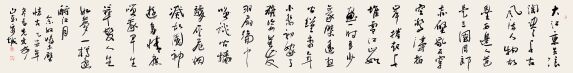 大江東去浪
淘盡千古
風流人物故
壘西邊人道
是三國周郎
赤壁亂石
穿空驚濤拍
岸捲起千
堆雪江山如
畫一時多少
豪傑遙想
公瑾當年
小喬初嫁了
雄姿英發
羽扇綸巾
談笑間檣
櫓灰飛煙
滅故國神
遊多情應
笑我早生
華髮人生
如夢一樽還
酹江月
念奴嬌赤壁
懷古